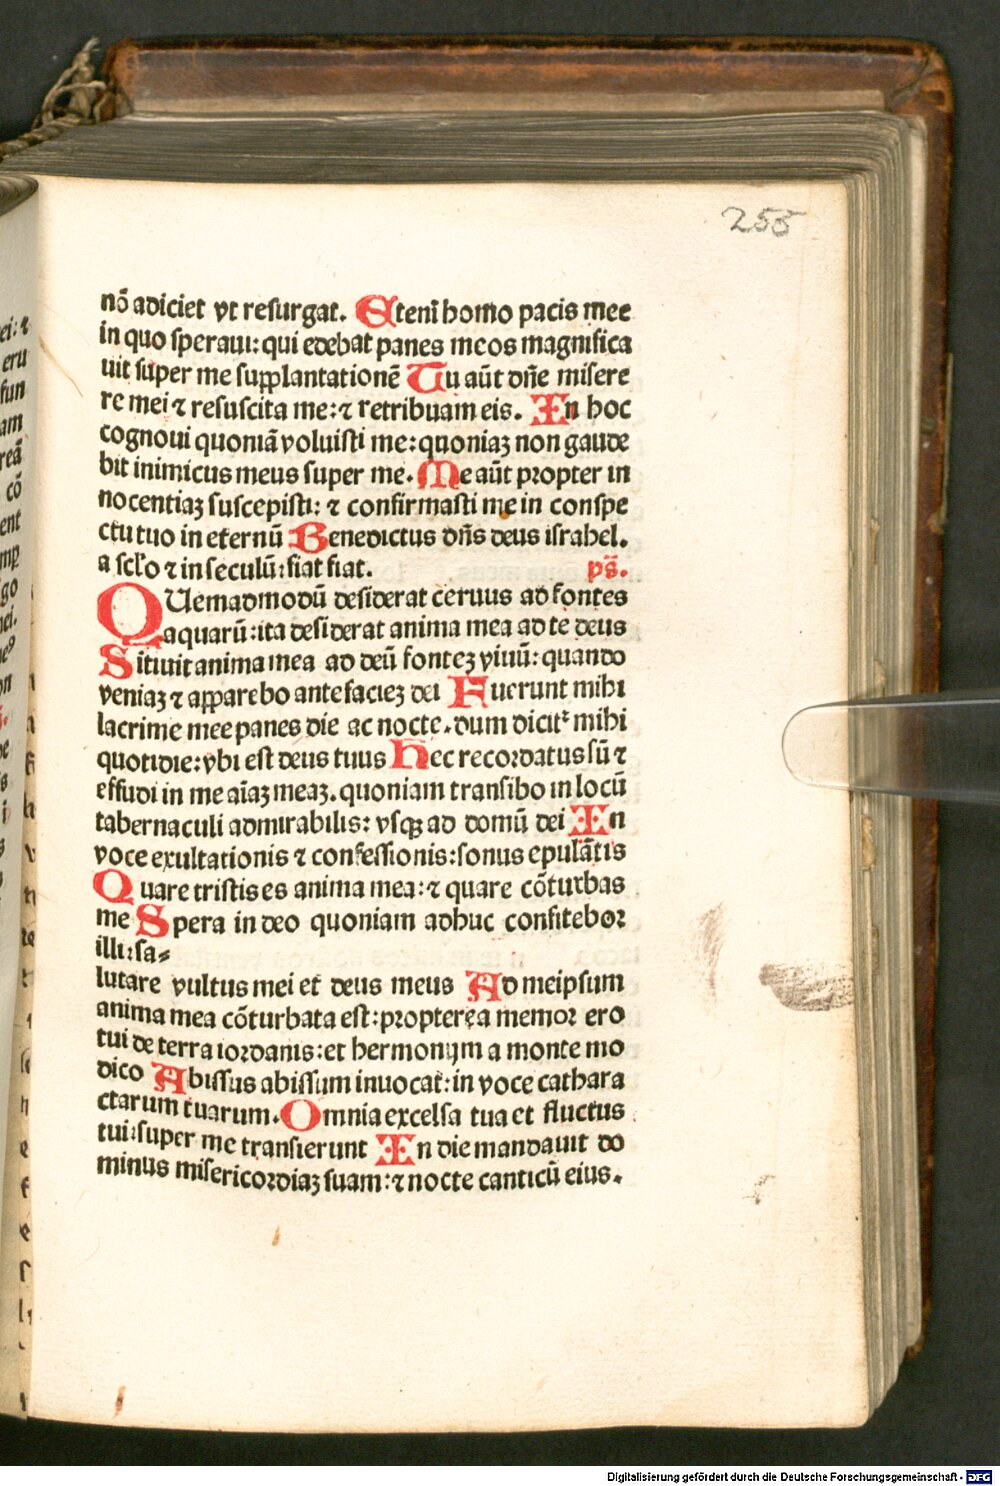 255
nō adiciet vt resurgat. Etenī homo pacis mee
in quo speraui: qui edebat panes meos magnifica
uit super me supplantationē Tu aūt dn̄e misere
re mei ⁊ resuscita me: ⁊ retribuam eis. In hoc
cognoui quoniā voluisti me: quoniaꝫ non gaude
bit inimicus meus super me. Me aūt propter in
nocentiaꝫ suscepisti: ⁊ confirmasti me in conspe
ctu tuo in eternū Benedictus dn̄s deus israhel.
a scl̄o ⁊ in seculū: fiat fiat. ps̄.
QUemadmodū desiderat ceruus ad fontes
aquarū: ita desiderat anima mea ad te deus
Sitiuit anima mea ad deū fonteꝫ viuū: quando
veniaꝫ ⁊ apparebo ante facieꝫ dei Fuerunt mihi
lacrime mee panes die ac nocte. dum dicit᷑ mihi
quotidie: vbi est deus tuus Hec recordatus sū ⁊
effudi in me aīaꝫ meaꝫ. quoniam transibo in locū
tabernaculi admirabilis: vsqꝫ ad domū dei In
voce exultationis ⁊ confessionis: sonus epulātis
Quare tristis es anima mea: ⁊ quare cōturbas
me Spera in deo quoniam adhuc confitebor
illi: sa⸗
lutare vultus mei et deus meus Ad meipsum
anima mea cōturbata est: propterea memor ero
tui de terra iordanis: et hermonijm a monte mo
dico Abissus abissum inuocat: in voce cathara
ctarum tuarum. Omnia excelsa tua et fluctus
tui: super me transierunt In die mandauit do
minus misericordiaꝫ suam: ⁊ nocte canticū eius.
Digitalisierung gefördert durch die Deutsche Forschungsgemeinschaft - DFG